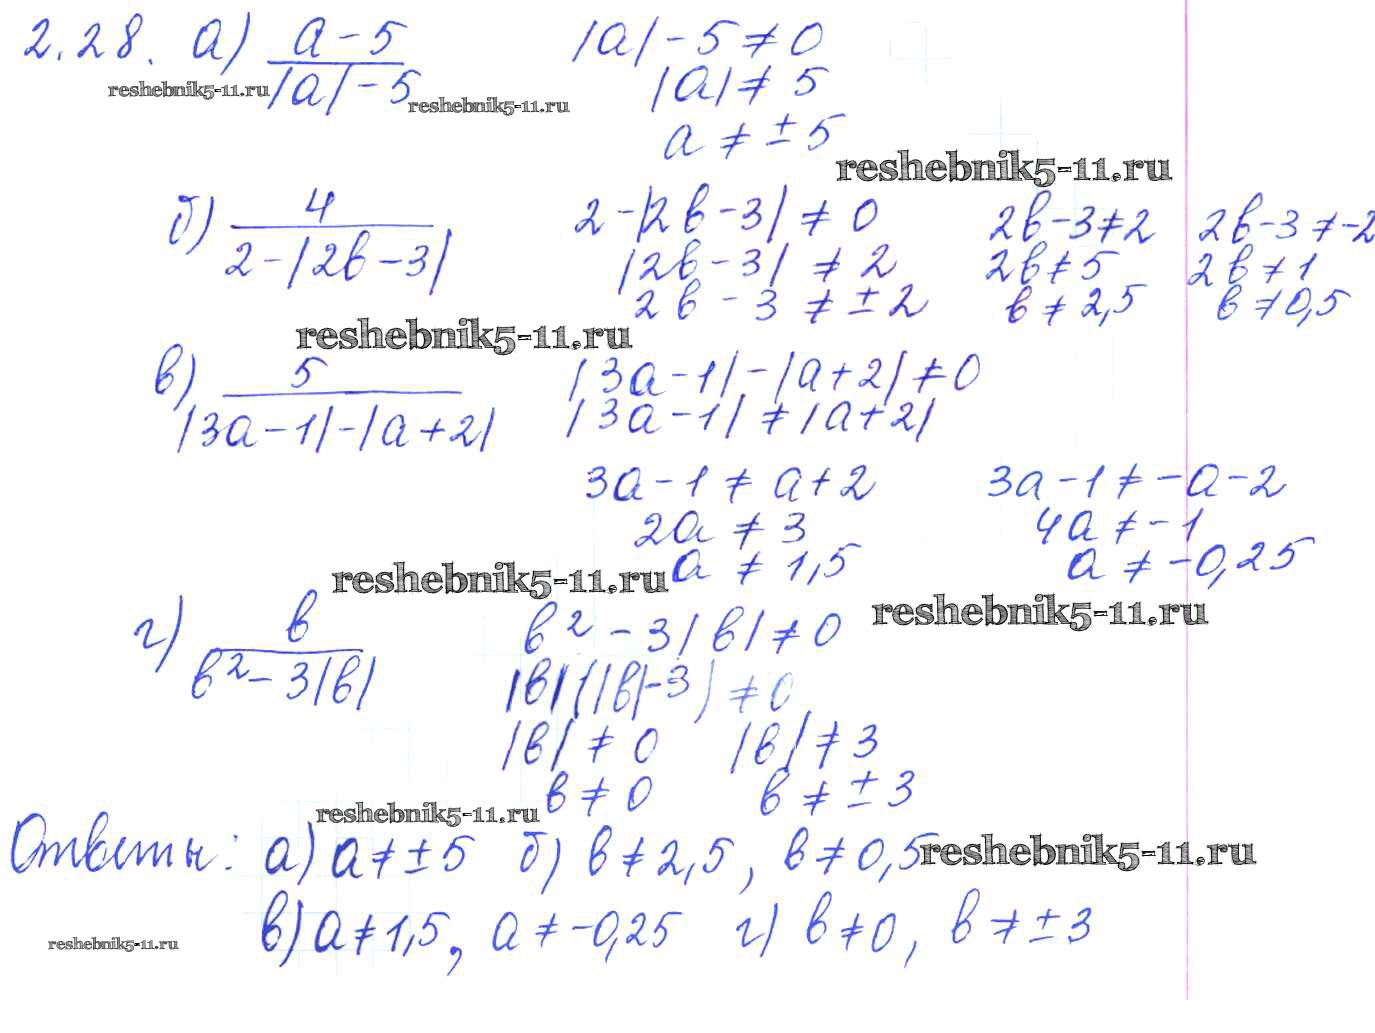 2.28. а) (a-5)/(|a|-5)   |a|-5≠0
reshebnik5-11.ru reshebnik5-11.ru   |a|≠5
a≠±5
reshebnik5-11.ru
б) 4/(2-|2b-3|)   2-|2b-3|≠0   2b-3≠2   2b-3≠-2
|2b-3|≠2   2b≠5   2b≠1
2b-3≠±2   b≠2,5   b≠0,5
reshebnik5-11.ru
в) 5/(|3a-1|-|a+2|)   |3a-1|-|a+2|≠0
|3a-1|≠|a+2|
3a-1≠a+2   3a-1≠-a-2
2a≠3   4a≠-1
reshebnik5-11.ru   a≠1,5   a≠-0,25
reshebnik5-11.ru
г) b/(b²-3|b|)   b²-3|b|≠0
|b|(|b|-3)≠0
|b|≠0   |b|≠3
b≠0   b≠±3
reshebnik5-11.ru
Ответы: а) a≠±5 б) b≠2,5, b≠0,5 reshebnik5-11.ru
в) a≠1,5, a≠-0,25 г) b≠0, b≠±3
reshebnik5-11.ru